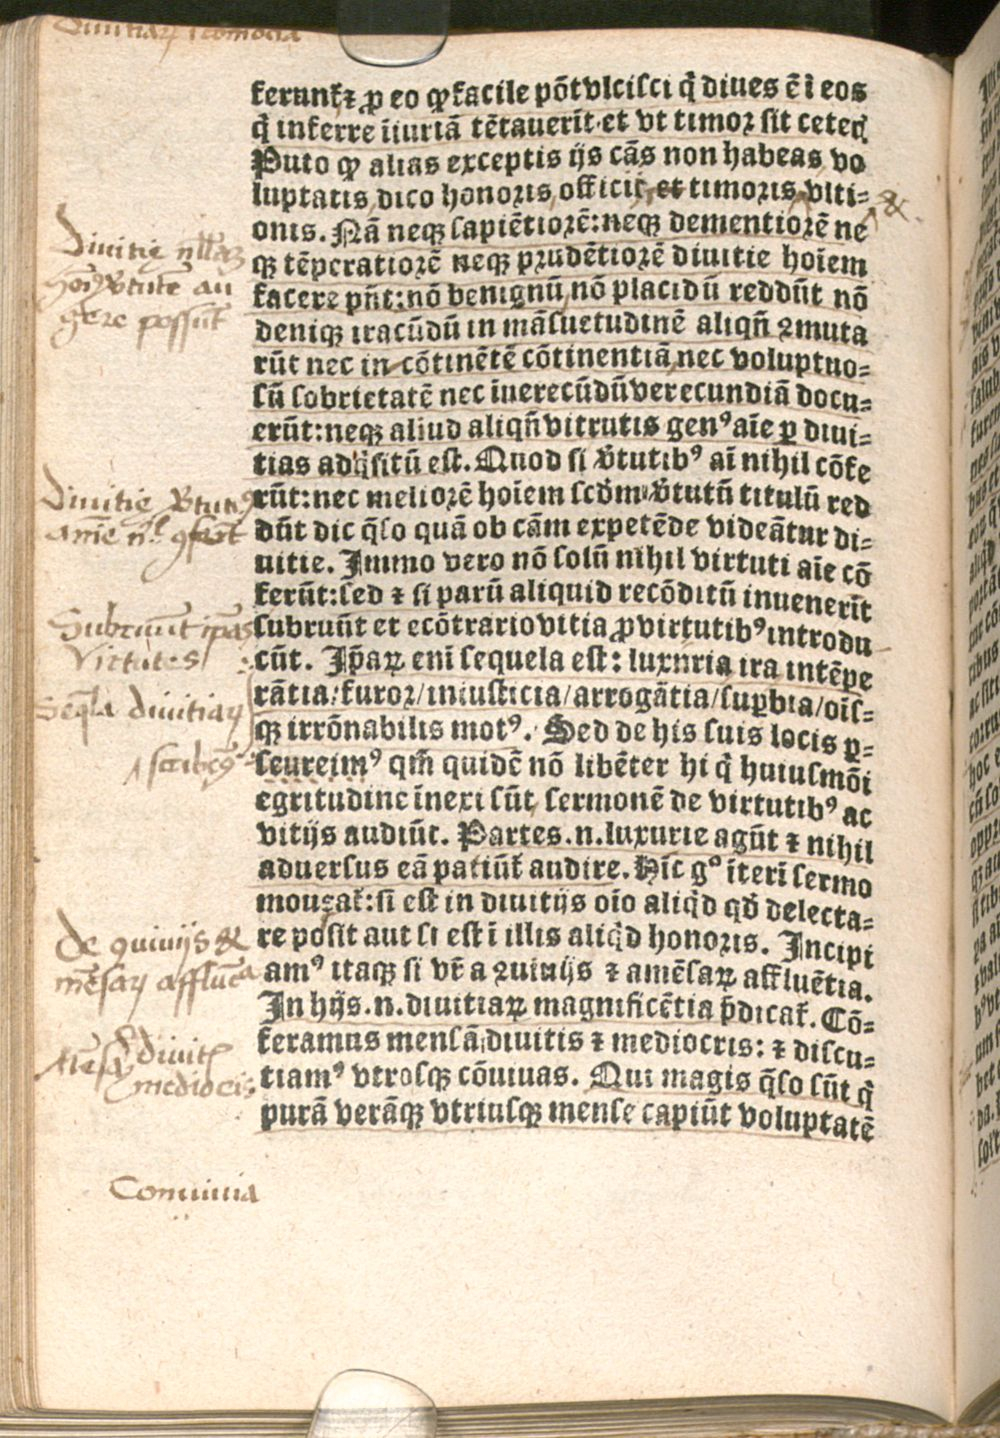 Diuitiarꝝ icomoda
ferunt̄ ⁊ ꝓ eo ꝙ facile põt vlcisci q̇ diues ē ī eos
q̇ inferre īiuriā tētauerīt et vt timor sit ceteꝝ
Puto ꝙ alias exceptis ijs cās non habeas vo
luptatis dico honoris officij, et timoris vlti-
&
onis. Nā neqꝫ sapiētiorē: neqꝫ dementiorē ne
qꝫ tēperatiorē neqꝫ prudētiorē diuitie hoīem
facere pn̄t: nō benignū nō placidū reddūt nō
deniqꝫ iracūdū in māsuetudinē aliqn̄ ꝯmuta
rūt nec in cōtinētē cōtinentiā nec voluptuo-
sū sobrietatē nec īuerecūdū verecundiā docu-
erūt: neqꝫ aliud aliqn̄ vitrutis genꝰ aīe ꝑ diui-
tias adq̇situ est. Quod si v̄tutibꝰ aī nihil cōfe
rūt: nec meliorē hoīem scd̄m v̄tutū titulū red
dūt dic q̄so quā ob cām expetēde videātur di-
uitie. Immo vero nō solū nihil virtuti aīe cō
ferūt: sed ⁊ si parū aliquid recōditū inuenerīt
subruūt et ecōtrario vitia ꝓ virtutibꝰ introdu
cūt. Ip̄aꝝ enī sequela est: luxuria ira intēpe
rātia/furor/iniusticia/arrogātia/suꝑbia/oīs-
qꝫ irrōnabilis motꝰ. Sed de his suis locis ꝑ-
seureimꝰ qm̄ quidē nō libēter hi q̇ huiusmōi
egritudine īnexi sūt sermonē de virtutibꝰ ac
vitijs audiūt. Partes.n.luxurie agūt ⁊ nihil
aduersus eā patiūt̄ audire. Hīc gͦ īterī sermo
moueat̄: si est in diuitijs oīo aliq̇d qd̄ delecta-
re possit aut si est ī illis aliq̇d honoris. Incipi
amꝰ itaqꝫ si vr̄ a ꝯuiuijs ⁊ a mēsaꝝ affluētia.
In hijs.n.diuitiaꝝ magnificētia p̄dicat̄. Cō-
feramus mensā diuitis ⁊ mediocris: ⁊ discu-
tiamꝰ vtrosqꝫ cōuiuas. Qui magis q̄so sūt q̇
purā verāqꝫ vtriusqꝫ mense capiūt voluptatē
Diuitię
v̄tutē au
gere possūt
Diuitię v̄tutibꝰ
aīme nl̄ ꝯferūt
Subruūt ipās
Virtutes
Seq̄la diuitiarꝝ
De ꝯuiuijs &
mēsarꝝ affluēa
diuitis
mediocris
Conuiuia